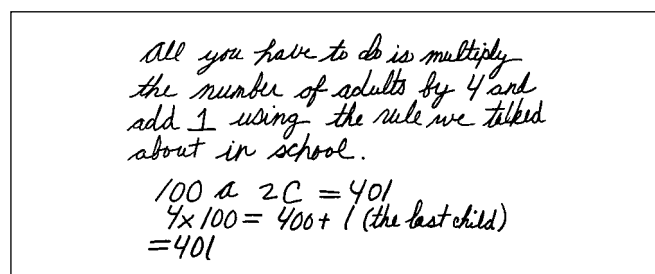 All you have to do is multiply
the number of adults by 4 and
add 1 using the rule we talked
about in school.
100 a 2C = 401
4x100 = 400 + 1 (the last child)
= 401